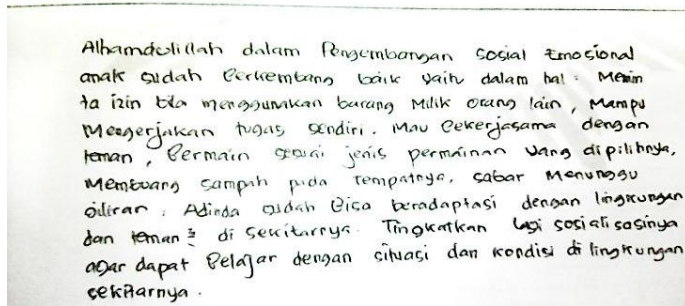 Alhamdulillah dalam Pengembangan sosial Emosional
anak sudah berkembang baik yaitu dalam hal : Memin
ta izin bila menggunakan barang Milik orang lain, Mampu
Mengerjakan tugas sendiri. Mau bekerjasama dengan
teman, Bermain sesuai jenis permainan yang dipilihnya,
Membuang sampah pada tempatnya, sabar Menunggu
giliran. Adinda sudah bisa beradaptasi dengan lingkungan
dan teman² di sekitarnya. Tingkatkan lagi sosialisasinya
agar dapat Belajar dengan situasi dan kondisi di lingkungan
sekitarnya.